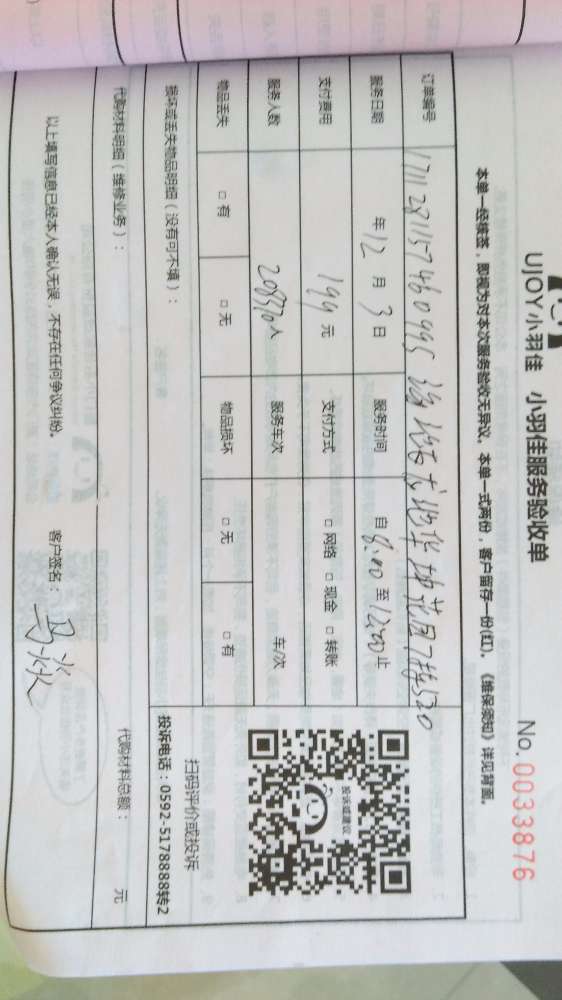 UJOY小羽佳 小羽佳服务验收单
No. 0033876
本单一经续签，即视为对本次服务验收无异议，本单一式两份，客户留存一份(红)。《维保须知》详见背面。
订单编号 171128115746099S 7栋520
服务日期 年 12 月 3 日 服务时间 自 8:00 至 12:00 止
支付费用 199 元 支付方式 □ 网络 □ 现金 □ 转账
服务人数 人 服务车次 车/次
物品丢失 □ 有 □ 无 物品损坏 □ 无 □ 有
投诉或建议
扫码评价或投诉
投诉电话：0592-5178888转2
损坏或丢失物品明细（没有可不填）：
代购材料明细（维修业务）： 代购材料总额： 元
以上填写信息已经本人确认无误，不存在任何争议纠纷。 客户签名： 马焱